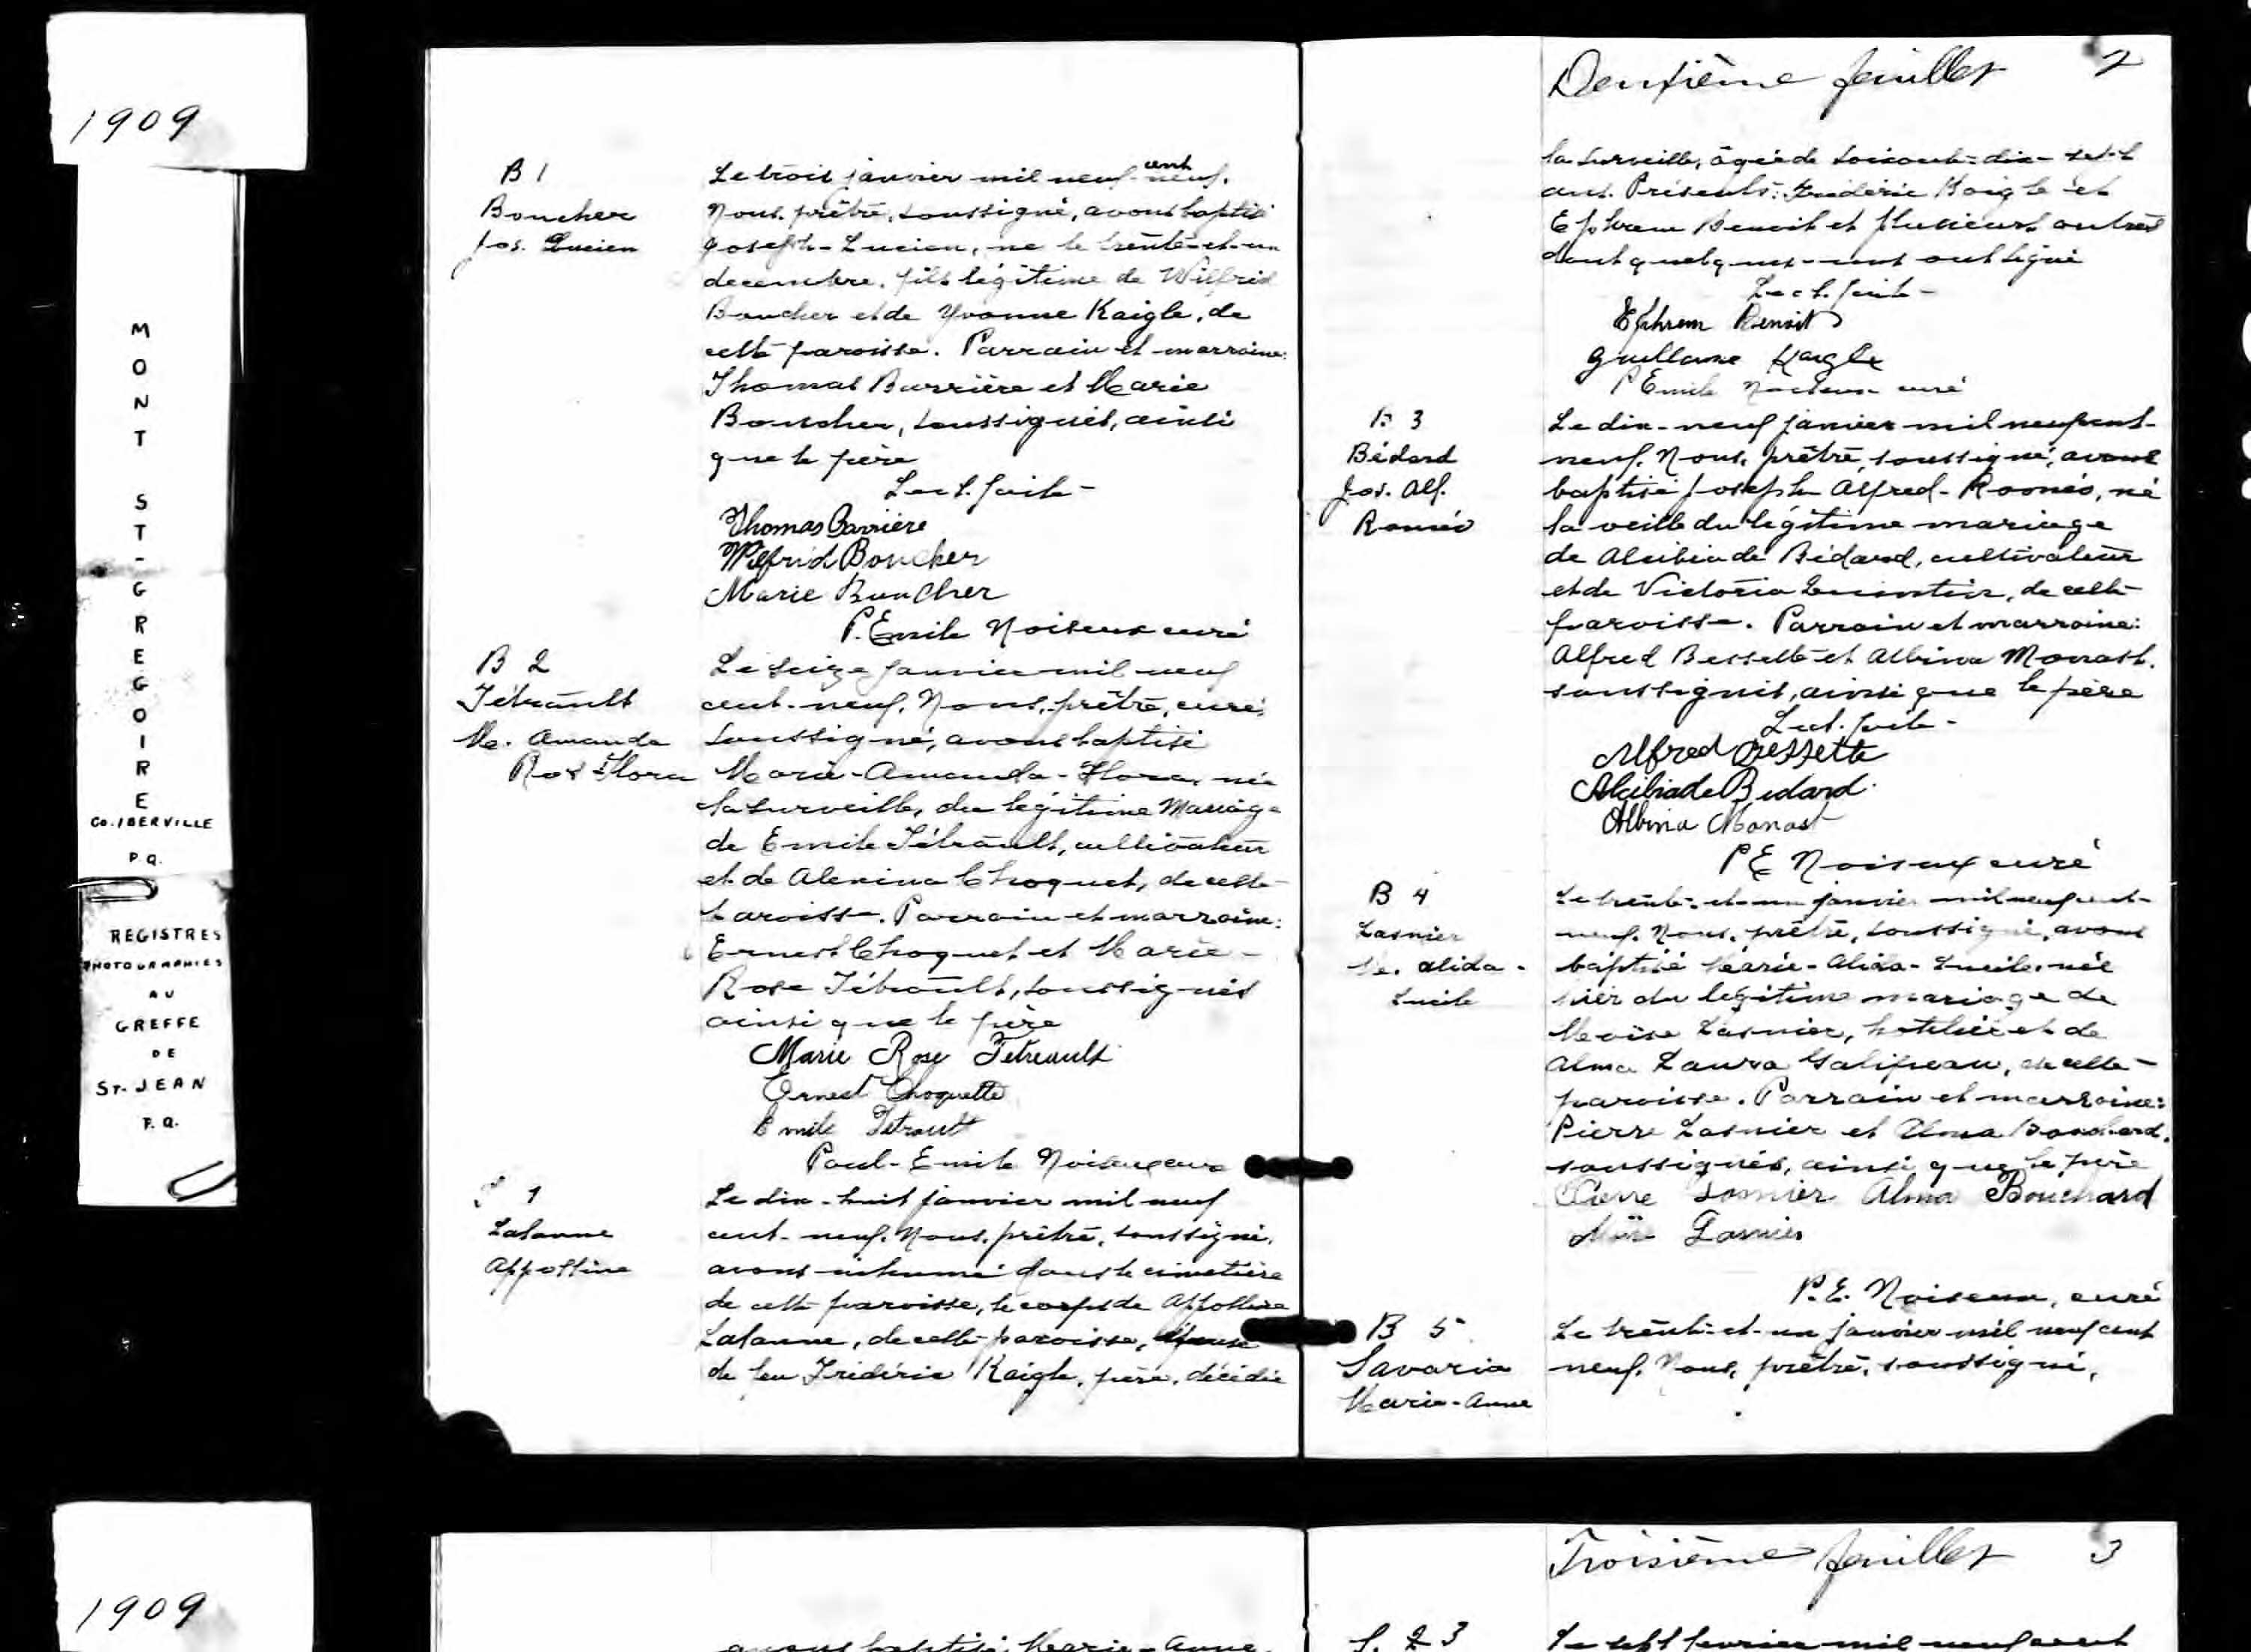 1909
MONT ST-GREGOIRE
CO. IBERVILLE
P.Q.
REGISTRES
PHOTOGRAPHIES
AU
GREFFE
DE
ST-JEAN
P.Q.
B 1
Boucher
Jos. Lucien
Le trois janvier mil neuf-cent neuf.
Nous, prêtre, soussigné, avons baptisé
Joseph-Lucien, né le trente-et-un
decembre, fils légitime de Wilfrid
Boucher et de Yvonne Kaigle, de
cette paroisse. Parrain et marraine:
Thomas Barrière et Marie
Boucher, soussignés, ainsi
que le père
Lect. faite-
Thomas Barrière
Wilfrid Boucher
Marie Boucher
P. Emile Noiseux curé
B 2
Tétrault
M. Amanda
Flora
Le seize janvier mil neuf
cent-neuf. Nous, prêtre, curé,
soussigné, avons baptisé
Marie-Amanda-Flora, née
la surveille, du légitime mariage
de Emile Tétrault, cultivateur
et de Alexina Choquet, de cette
paroisse. Parrain et marraine:
Ernest Choquet et Marie-
Rose Tétrault, soussignés
ainsi que le père
Marie Rose Tetreault
Ernest Choquette
Emile Tetrault
Paul-Emile Noiseux curé
S 1
Lalanne
Appolline
Le dix-huit janvier mil neuf
cent-neuf. Nous, prêtre, soussigné,
avons inhumé dans le cimetière
de cette paroisse, le corps de Appolline
Lalanne, de cette paroisse, épouse
de feu Frédéric Kaigle, père, décédée
Deuxième feuillet 2
la surveille, âgée de soixante-dix-sept
ans. Présents: Frédéric Kaigle et
Ephrem Benoit et plusieurs autres
dont quelques-uns ont signé
Lect. faite-
Ephrem Benoit
Guillaume Kaigle
P Emile Noiseux curé
B 3
Bédard
Jos. Alf.
Roméo
Le dix-neuf janvier mil neuf cent-
neuf. Nous, prêtre, soussigné, avons
baptisé Joseph Alfred-Roméo, né
la veille du légitime mariage
de Alcibiade Bédard, cultivateur
et de Victoria, de cette
paroisse. Parrain et marraine:
Alfred Bessette et Albina Monast.
soussignés, ainsi que le père
Lect. faite-
Alfred Bessette
Alcibiade Bedard.
Albina Monast
P E Noiseux curé
B 4
Lasnier
M. Alida-
Lucile
Le trente-et-un janvier mil neuf cent-
neuf. Nous, prêtre, soussigné, avons
baptisé Marie-Alida-Lucile, née
hier du légitime mariage de
Moïse Lasnier, hotelier et de
Alma Laura Galipeau, de cette
paroisse. Parrain et marraine:
Pierre Lasnier et Alma Bouchard,
soussignés, ainsi que le père
Pierre Lasnier Alma Bouchard
Lasnier
P. E. Noiseux, curé
B 5
Savaria
Marie-Anne
Le trente-et-un janvier mil neuf cent
neuf. Nous, prêtre, soussigné,
1909
avons baptisé Marie-Anne
Troisième feuillet 3
S. 2 3
Le sept fevrier mil neuf cent